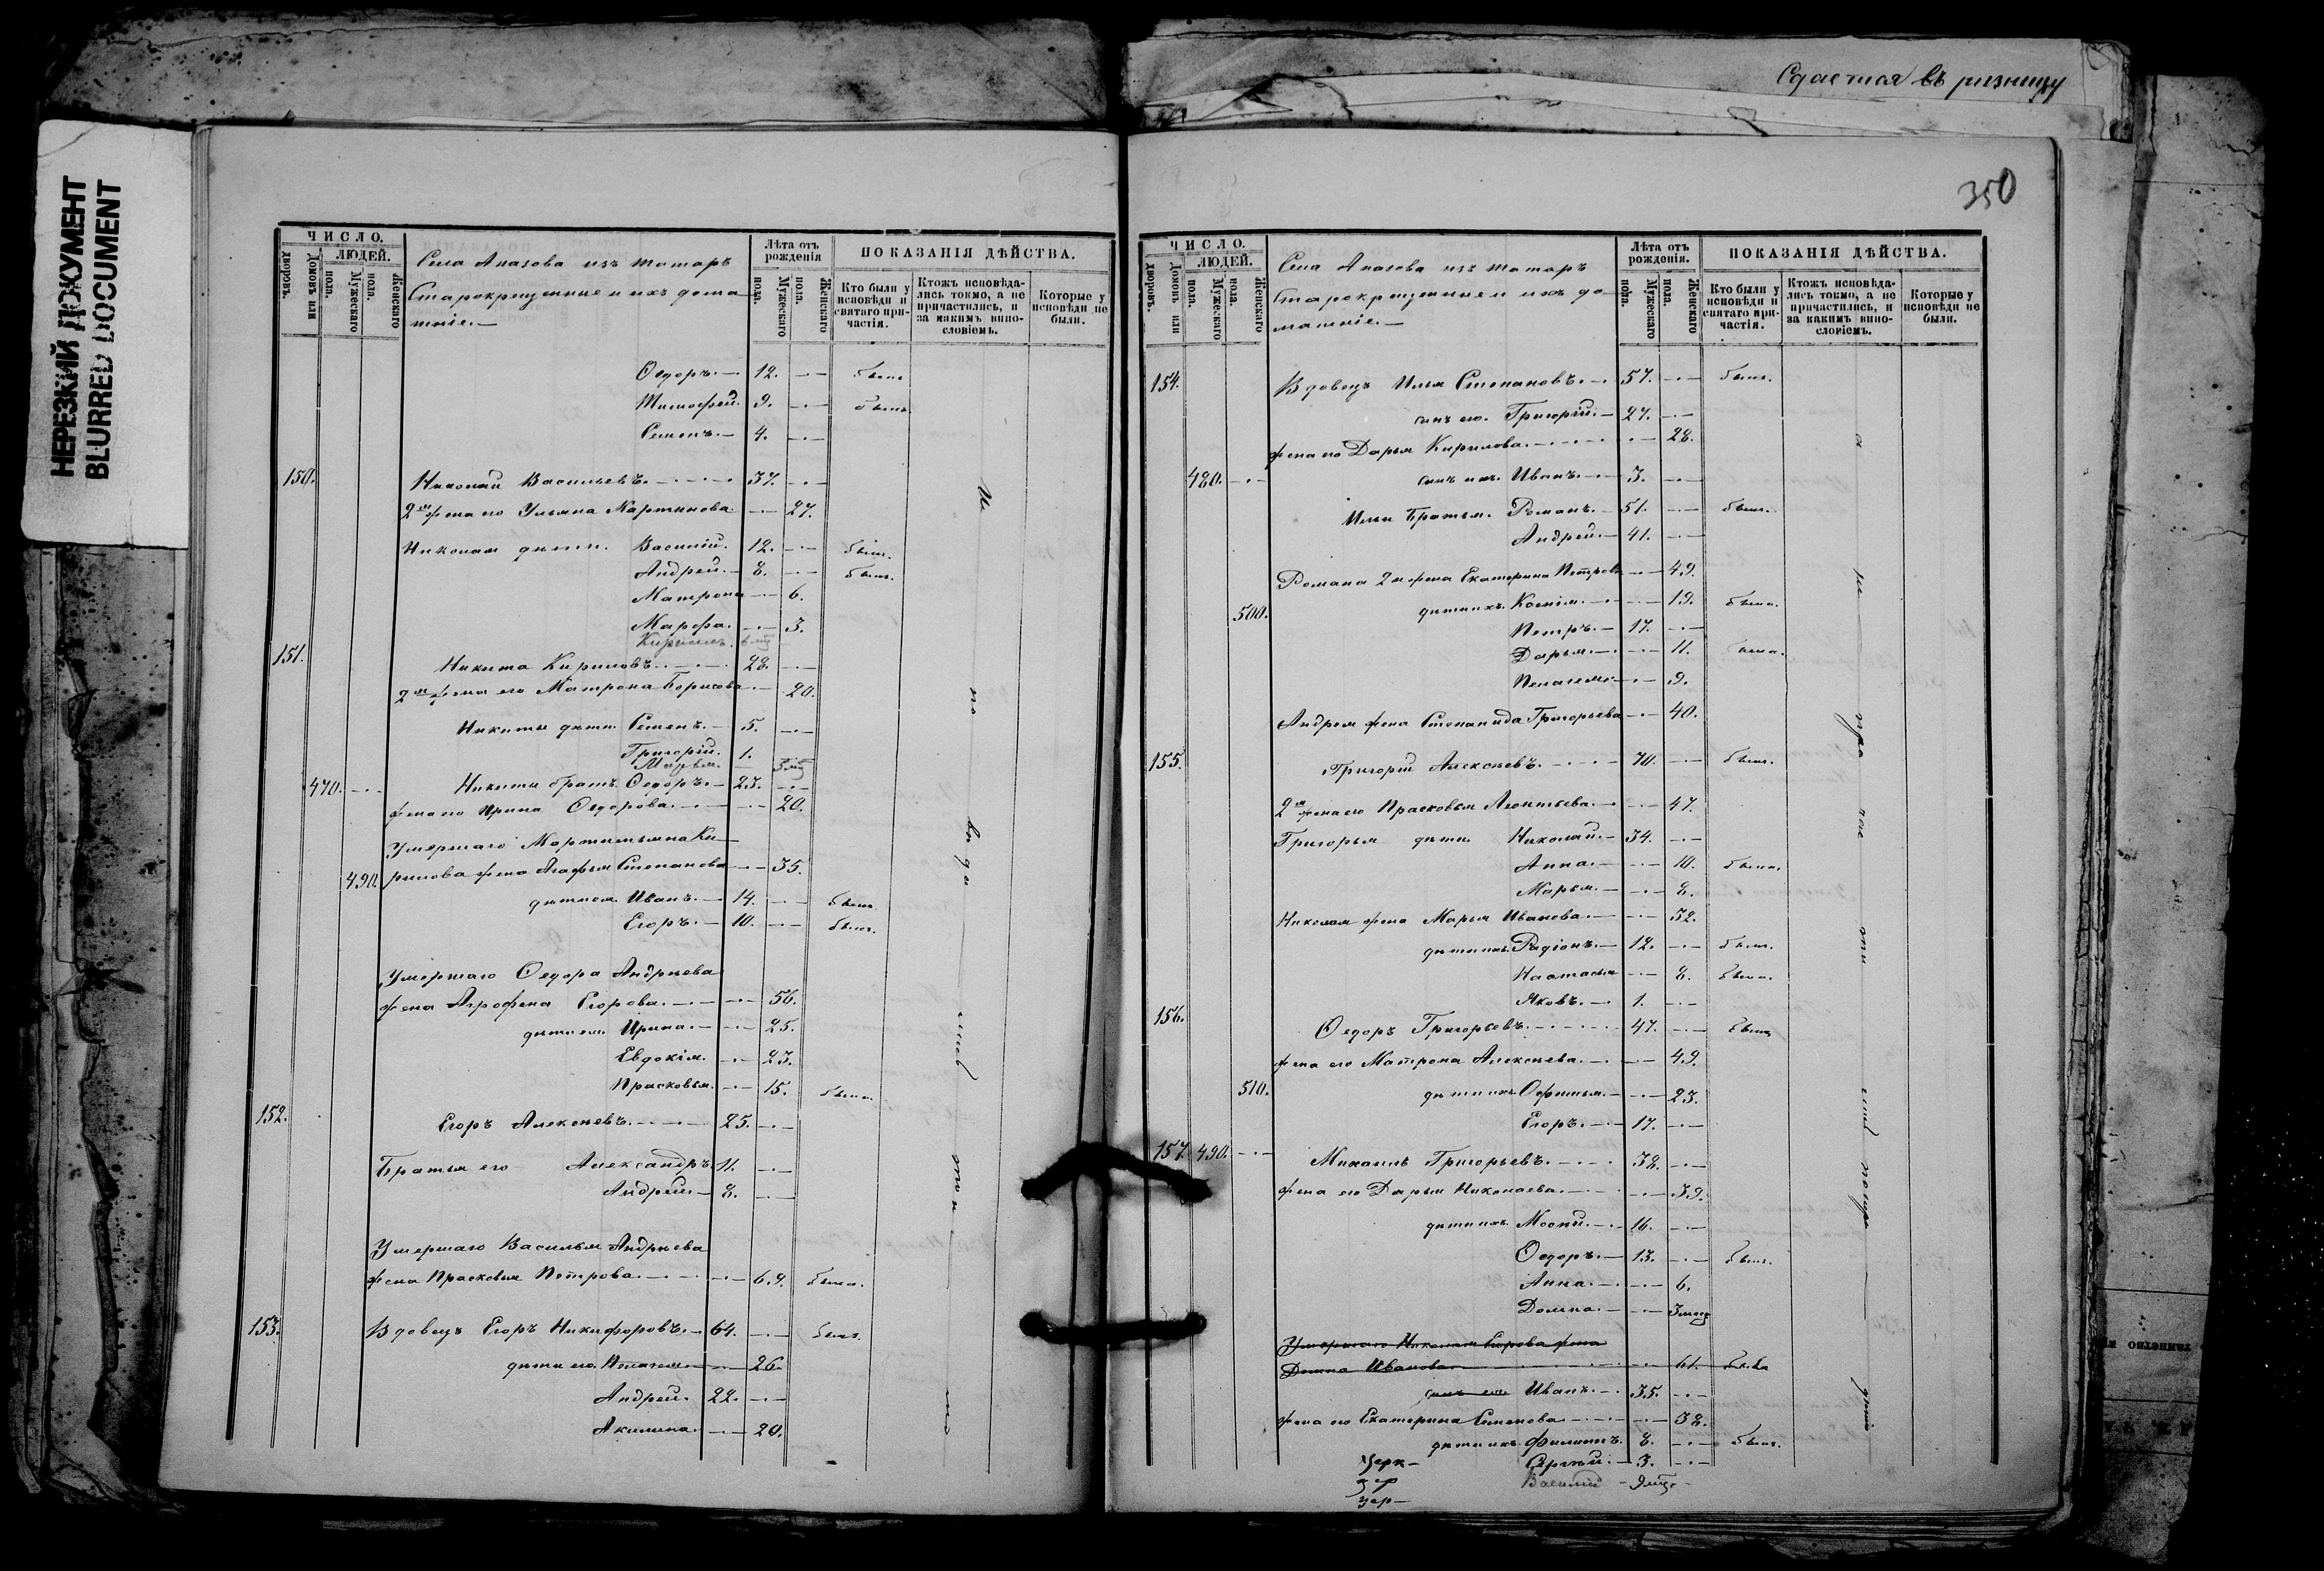 Сдается въ ризницу
НЕРЕЗКИЙ ДОКУМЕНТ
BLURRED DOCUMENT
ЧИСЛО.
Домовъ или дворовъ.
ЛЮДЕЙ.
Мужескаго пола.
Женскаго пола.
Села Апазова изъ татаръ
Старокрещенные и ихъ дома
шніе.—
Лѣта отъ рожденія
Мужескаго пола.
Женскаго пола.
ПОКАЗАНІЯ ДѢЙСТВА.
Кто были у исповѣди и святаго причастія.
Ктожъ исповѣдались токмо, а не причастились, и за какимъ винословіемъ.
Которые у исповѣди не были.
Ѳедоръ.— 12. —·— былъ
Тимофей. 9. —·— былъ
Семенъ.— 4. —·—
150. Николай Васильевъ. 37. —·—
2я жена его Ульяна Мартинова —·— 27.
Николая дѣти. Василій. 12. —·— былъ.
Андрей.— 8. —·— былъ.
Матрона —·— 6.
Марфа. —·— 3.
Кирилъ.
151. Никита Кириловъ. 28. —·—
2я жена его Матрона Борисова.— 20.
Никиты дѣти. Семенъ.— 5. —·—
Григорій. 1.
Марья. 3 мѣ
470. Никиты братъ Ѳедоръ.— 23. —·—
жена его Ирина Ѳедорова. —·— 20.
Умершаго Мартимьяна Ки—
490. рилова жена Агафья Степанова —·— 35.
дѣти ея. Иванъ.— 14. —·— былъ.
Егоръ.— 10. —·— былъ.
Умершаго Ѳедора Андрѣева
жена Агрофена Егорова. —·— 56.
дѣти ея. Ирина.— —·— 25.
Евдокія. —·— 23.
Прасковья. —·— 15. была.
152. Егоръ Алексѣевъ. 25. —·—
Братья его Александръ 11. —·—
Андрей.— 8. —·—
Умершаго Василья Андрѣева
жена Прасковья Петрова. —·— 69. была.
153. Вдовецъ Егоръ Никифоровъ.— 64. —·— былъ.
дѣти его. Пелагея —·— 26.
Андрей. 22. —·—
Акилина. —·— 20.
350
ЧИСЛО.
Домовъ или дворовъ.
ЛЮДЕЙ.
Мужескаго пола.
Женскаго пола.
Села Апазова изъ татаръ
Старокрещенные и ихъ до
машніе.—
Лѣта отъ рожденія.
Мужескаго пола.
Женскаго пола.
ПОКАЗАНІЯ ДѢЙСТВА.
Кто были у исповѣди и святаго причастія.
Ктожъ исповѣдались токмо, а не причастились, и за какимъ винословіемъ.
Которые у исповѣди не были.
154. Вдовецъ Илья Степановъ. 57. —·— былъ.
сынъ его. Григорій.— 27. —·—
жена его Дарья Кирилова. —·— 28.
480. —·— сынъ ихъ. Иванъ. 3. —·—
Ильи братья. Романъ. 51. —·— былъ.
Андрей.— 41. —·—
Романа 2я жена Екатерина Петрова —·— 49.
500. дѣти ихъ. Ксенія. —·— 19. была.
Петръ.— 17. —·—
Дарья. —·— 11. была.
Пелагея —·— 9.
Андрея жена Степанида Григорьева —·— 40.
155. Григорій Алексѣевъ. 70. —·— былъ.
2я жена его Прасковья Леонтьева. —·— 47.
Григорья дѣти. Николай.— 34. —·—
Анна. —·— 10. была.
Марья. —·— 8.
Николая жена Марья Иванова. —·— 32.
дѣти ихъ. Радіонъ.— 12. —·— былъ.
Настасья —·— 8. была.
Яковъ. 1. —·—
156. Ѳедоръ Григорьевъ. 47. —·— былъ
жена его Матрона Алексѣева. —·— 49.
510. дѣти ихъ. Офимья. —·— 23.
Егоръ.— 17. —·—
157. 490. —·— Михаилъ Григорьевъ. 38. —·—
жена его Дарья Николаева. —·— 39.
дѣти ихъ. Мосѣй. 16. —·—
Ѳедоръ.— 13. —·— былъ.
Анна. —·— 6.
Домна. —·— 3 мѣс
Умершаго Николая Егорова жена
Домна Иванова —·— 61. была
сынъ ея Иванъ. 35. —·—
жена его Екатерина Семенова —·— 38.
дѣти ихъ. Филиппъ. 8. —·— былъ.
Сергѣй. 3. —·—
Василій